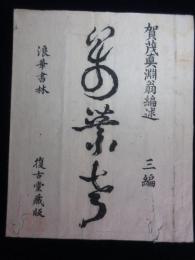 賀茂真淵翁編述
三編
万葉考
浪華書林
復古堂蔵版